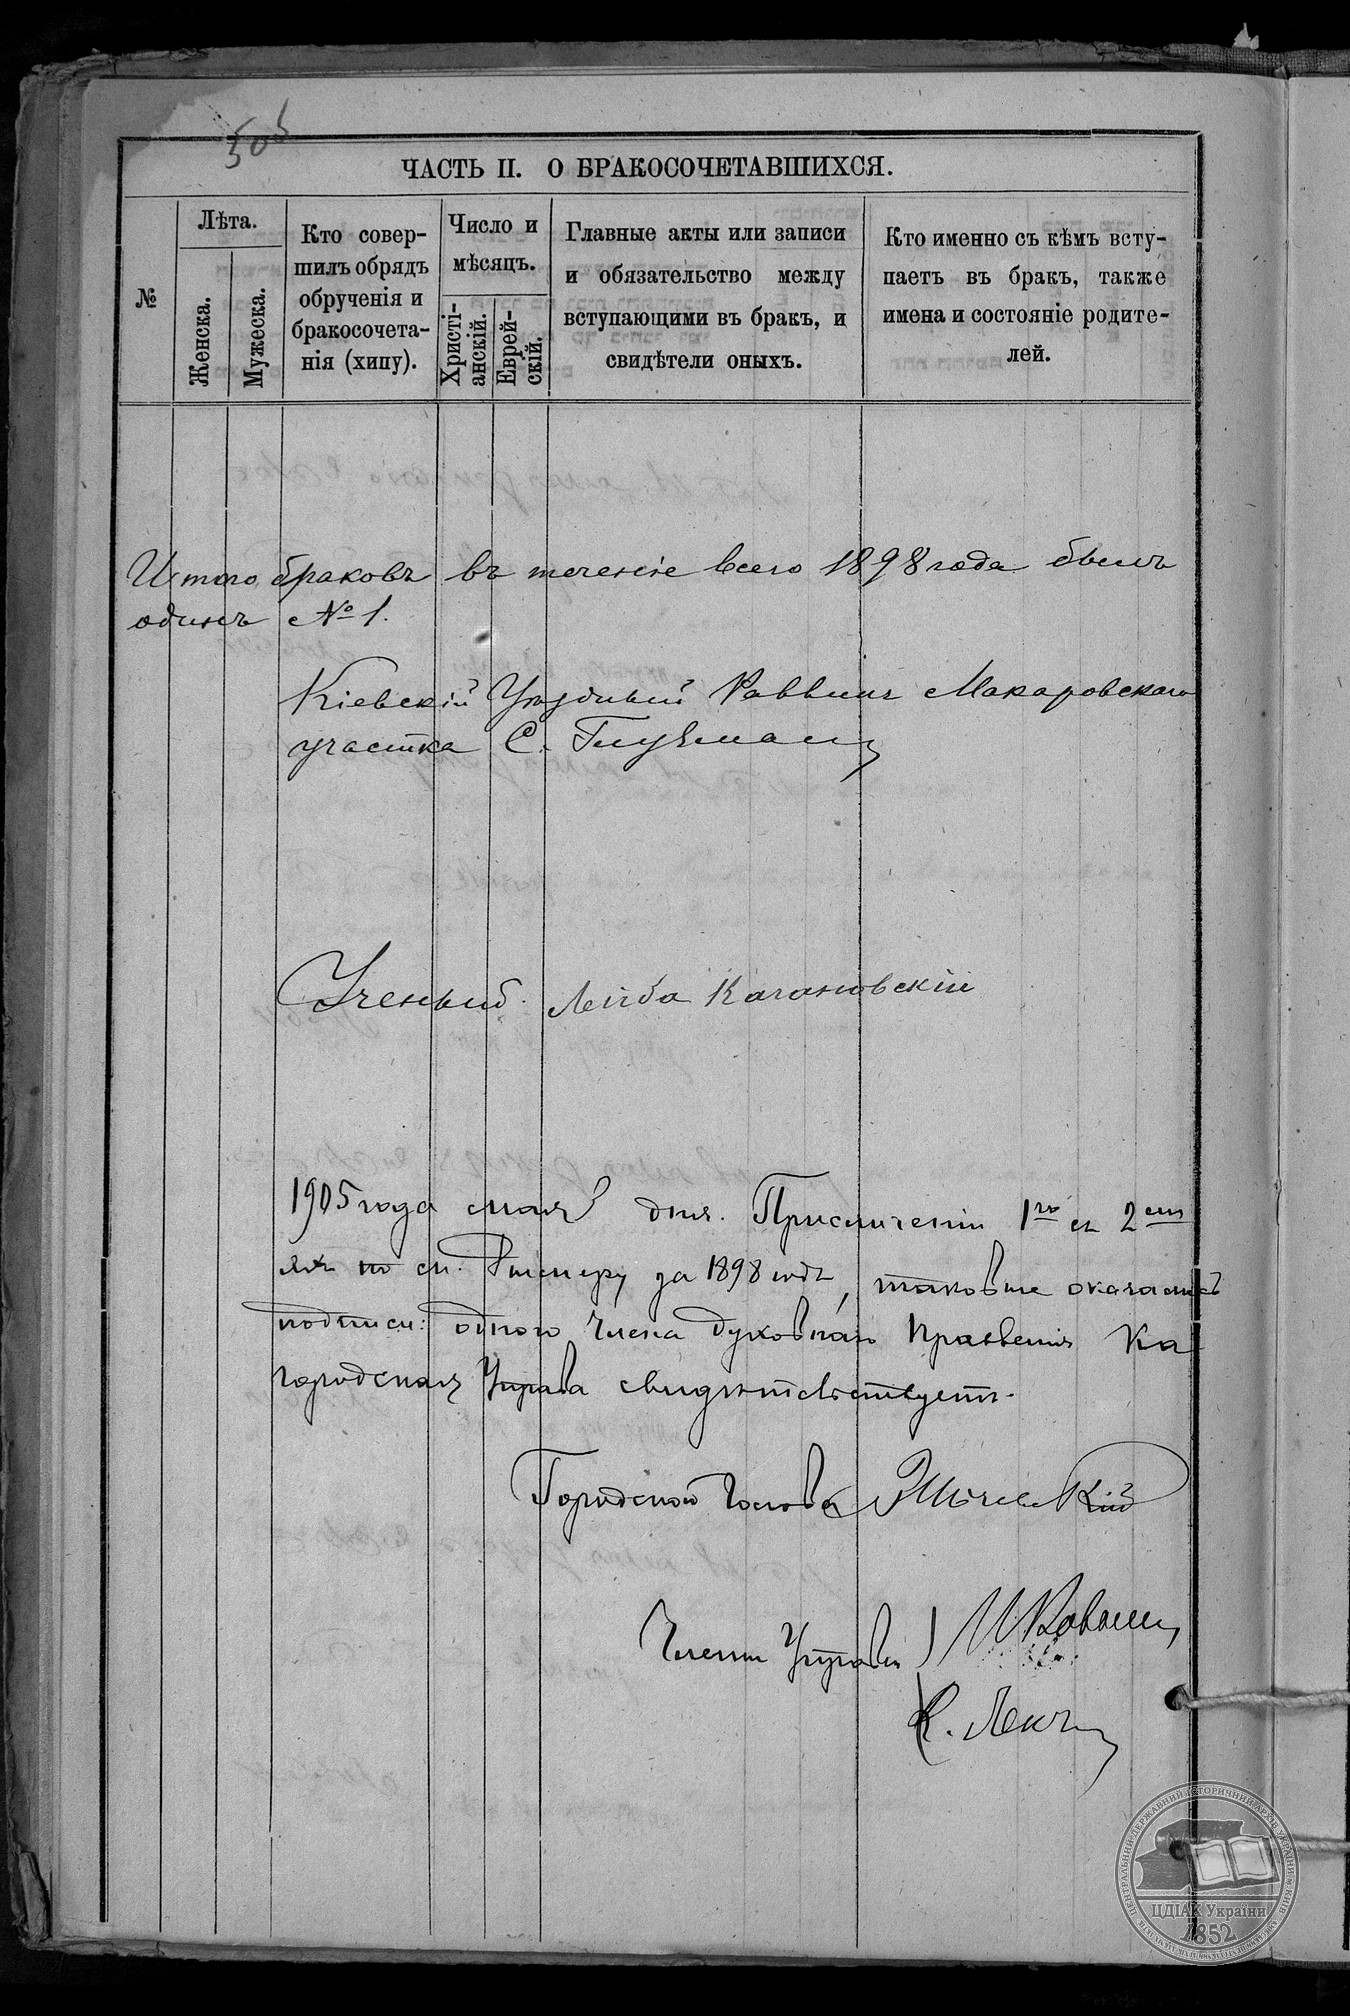 ЧАСТЬ II. О БРАКОСОЧЕТАВШИХСЯ.
№
Лѣта.
Женска.
Мужеска.
Кто совер-
шилъ обрядъ
обрученія и
бракосочета-
нія (хипу).
Число и
мѣсяцъ.
Христі-
анскій.
Еврей-
скій.
Главные акты или записи
и обязательство между
вступающими въ бракъ, и
свидѣтели оныхъ.
Кто именно съ кѣмъ всту-
паетъ въ бракъ, также
имена и состояніе родите-
лей.
Итого браковъ въ теченіе всего 1898 года былъ
одинъ №1.
Кіевскій Уѣздный Раввинъ Макаровскаго
участка С. Глузманъ
Ученый Лейба Качановскій
1905 года мая дня. При сличеніи 1го съ 2мъ
за 1898 годъ, таковые оказались
подписи: одного члена духовнаго правленія
городская Управа свидѣтельствуетъ.
Городской Голова
Члены Управы
ЦЕНТРАЛЬНИЙ ДЕРЖАВНИЙ ІСТОРИЧНИЙ АРХІВ УКРАЇНИ М.КИЇВ
ЦДІАК України
1852